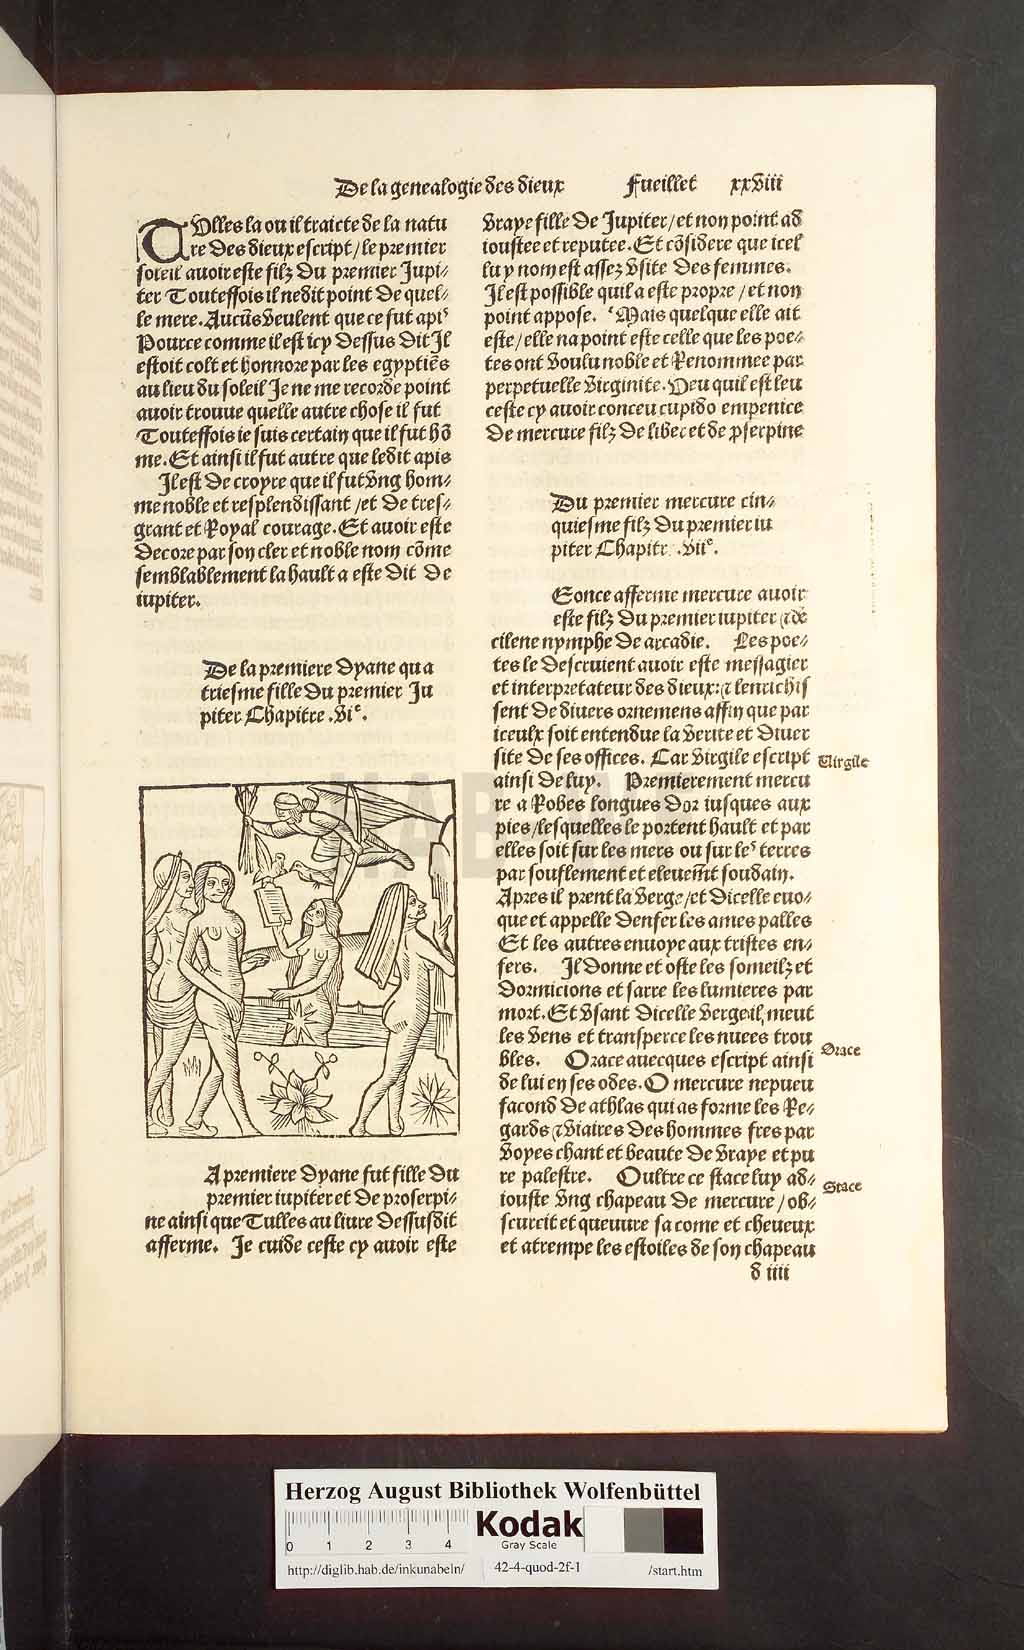 De la genealogie des dieux Fueillet xxviii
TVlles la ou il traicte de la natu
re des dieux escript / le premier
soleil auoir este filz du premier Jupi⸗
ter Touteffois il ne dit point de quel⸗
le mere. Aucũs veulent que ce fut apiˢ
Pource comme il est icy dessus dit Jl
estoit colt et honnore par les egyptiẽs
au lieu du soleil Je ne me recorde point
auoir trouue quelle autre chose il fut
Touteffois ie suis certain que il fut hõ
me. Et ainsi il fut autre que ledit apis
Jl est de croyre que il fut vng hom⸗
me noble et resplendissant / et de tres⸗
grant et Royal courage. Et auoir este
decore par son cler et noble nom cõme
semblablement la hault a este dit de
iupiter.
De la premiere dyane qua
triesme fille du premier Ju
piter Chapitre .viᵉ.
A premiere dyane fut fille du
premier iupiter et de proserpi⸗
ne ainsi que Tulles au liure dessusdit
afferme. Je cuide ceste cy auoir este
vraye fille de Jupiter / et non point ad
ioustee et reputee. Et cõsidere que icel
luy nom est assez vsite des femmes.
Jl est possible quil a este propre / et non
point appose. Mais quelque elle ait
este / elle na point este celle que les poe⸗
tes ont voulu noble et Renommee par
perpetuelle virginite. Veu quil est leu
ceste cy auoir conceu cupido empenice
de mercure filz de liber et de ꝓserpine
Du premier mercure cin⸗
quiesme filz du premier iu
piter Chapitr .viiᵉ.
Eonce afferme mercure auoir
este filz du premier iupiter ⁊ de
cilene nymphe de arcadie. Les poe⸗
tes le descruient auoir este messagier
et interpretateur des dieux: ⁊ lenrichis
sent de diuers ornemens affin que par
iceulx soit entendue la verite et diuer
site de ses offices. Car virgile escript
ainsi de luy. Premierement mercu
re a Robes longues dor iusques aux
pies / lesquelles le portent hault et par
elles soit sur les mers ou sur leˢ terres
par souflement et eleuemẽt soudain.
Apres il prent la verge / et dicelle euo⸗
que et appelle denfer les ames palles
Et les autres enuoye aux tristes en⸗
fers. Jl donne et oste les someilz et
dormicions et sarre les lumieres par
mort. Et vsant dicelle verge il meut
les vens et transperce les nuees trou
bles. Orace auecques escript ainsi
de lui en ses odes. O mercure nepueu
facond de athlas qui as forme les Re⸗
gards ⁊ viaires des hommes fres par
voyes chant et beaute de vraye et pu
re palestre. Oultre ce stace luy ad⸗
iouste vng chapeau de mercure / ob⸗
scurcit et queuure sa come et cheueux
et atrempe les estoiles de son chapeau
d iiii
Uirgile
Orace
Stace
HAB
Herzog August Bibliothek Wolfenbüttel
0 1 2 3 4
Kodak
Gray Scale
http://diglib.hab.de/inkunabeln/ 42-4-quod-2f-1 /start.htm